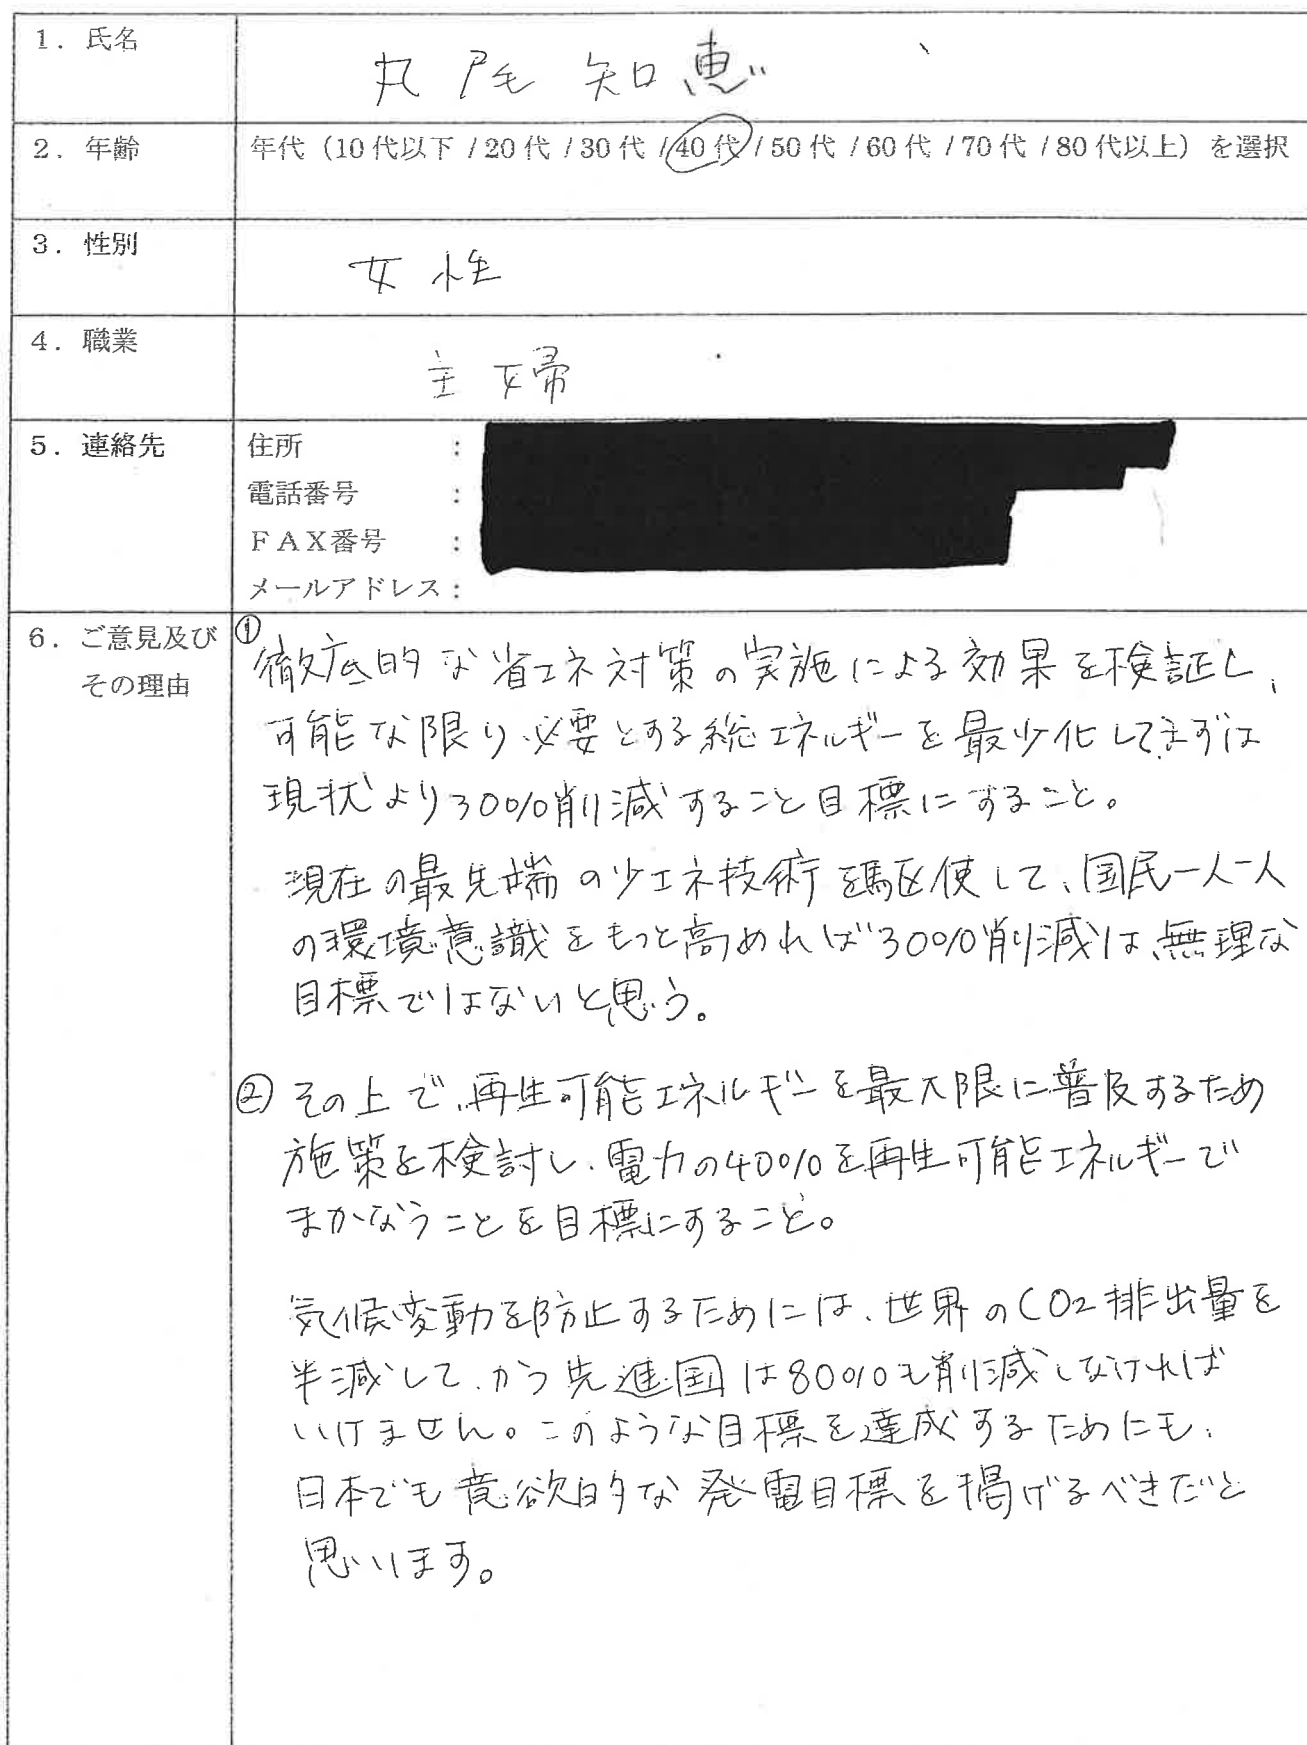 1. 氏名
丸尾 知恵
2. 年齢
年代（10代以下 / 20代 / 30代 / 40代 / 50代 / 60代 / 70代 / 80代以上）を選択
3. 性別
女性
4. 職業
主婦
5. 連絡先
住所 :
電話番号 :
ＦＡＸ番号 :
メールアドレス :
6. ご意見及び
その理由
① 徹底的な省エネ対策の実施による効果を検証し、
可能な限り必要とする総エネルギーを最少化してまずは
現状より30%削減すること目標にすること。
現在の最先端の少エネ技術を駆使して、国民一人一人
の環境意識をもっと高めれば30%削減は、無理な
目標ではないと思う。
② その上で、再生可能エネルギーを最大限に普及するため
施策を検討し、電力の40%を再生可能エネルギーで
まかなうことを目標にすること。
気候変動を防止するためには、世界のCO2排出量を
半減して、かつ先進国は80%も削減しなければ
いけません。このような目標を達成するためにも、
日本でも意欲的な発電目標を掲げるべきだと
思います。